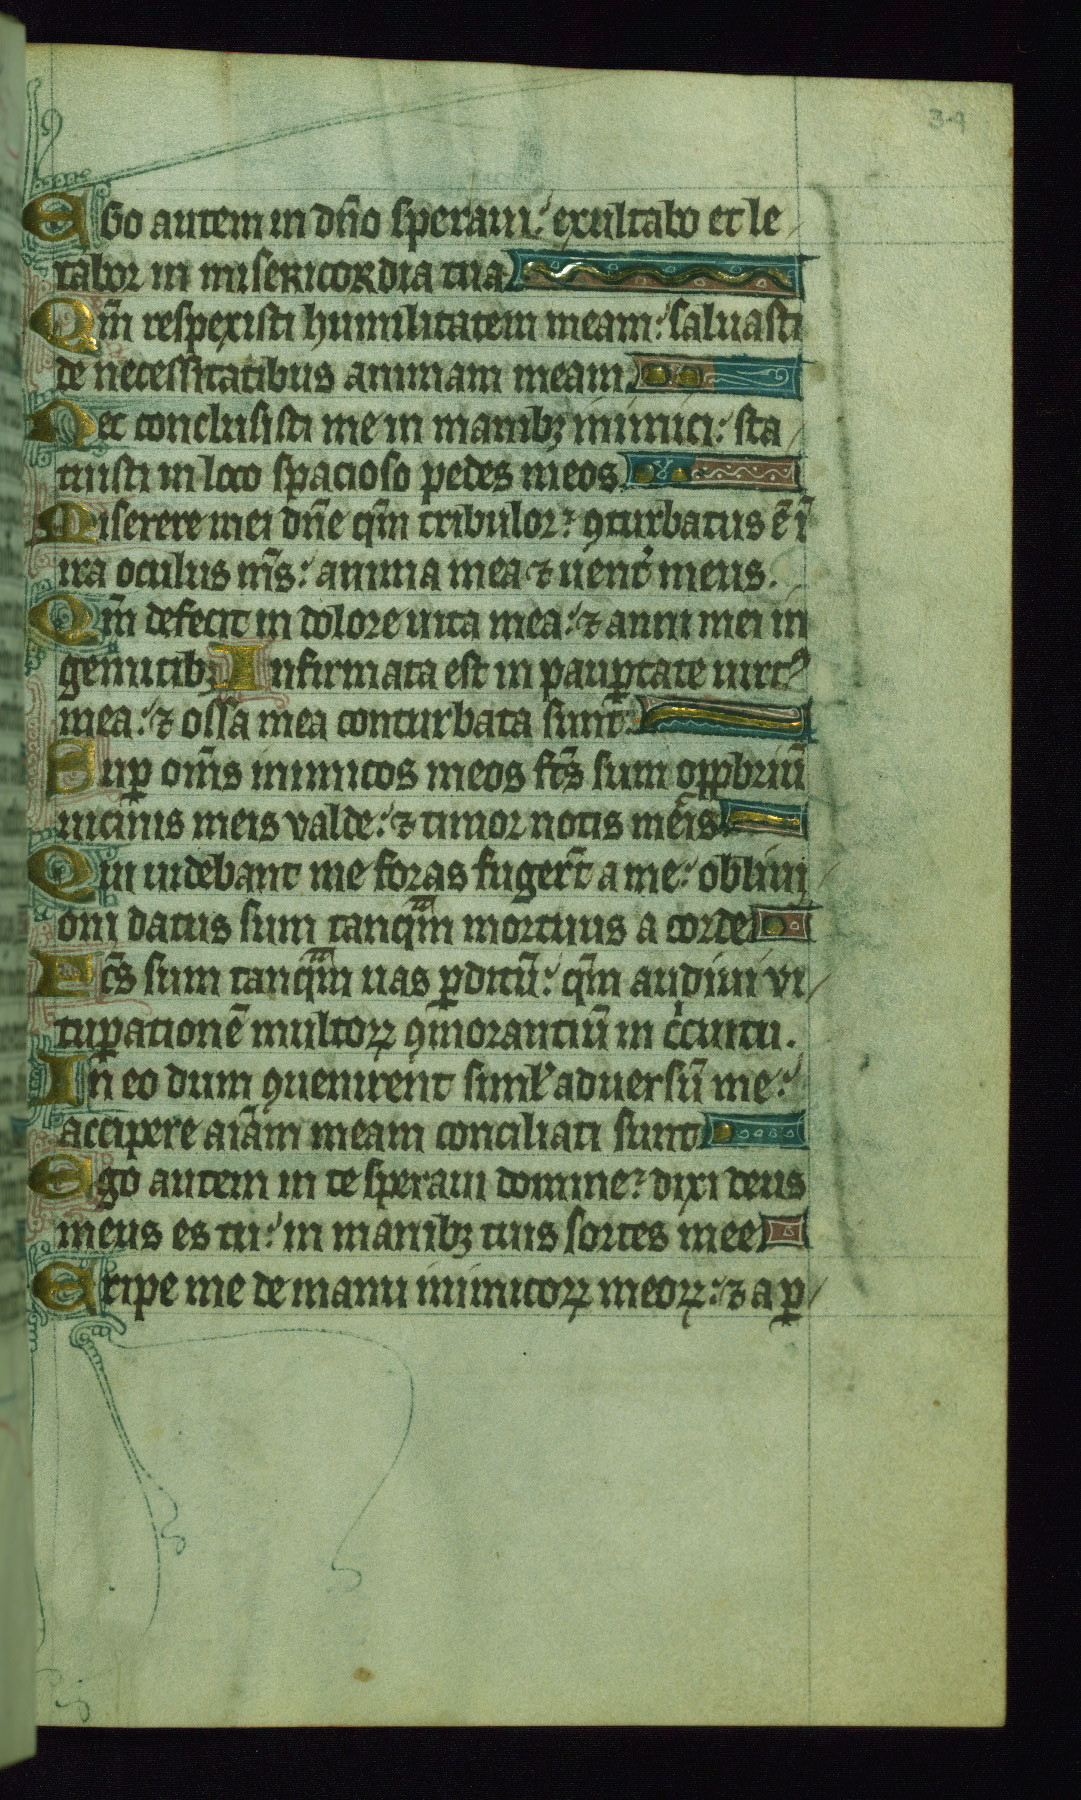 34
Ego autem in dño speraui: exultabo et le
tabor in misericordia tua
Qm̄ respexisti humilitatem meam: saluasti
de necessitatibus animam meam.
Nec conclusisti me in manibꝫ inimici: sta
tuisti in loco spacioso pedes meos.
Miserere mei dñe qm̄ tribulor: ꝯturbatus ē ī
ira oculus ms̄: anima mea ⁊ uent̉ meus.
Qm̄ defecit in dolore uita mea: ⁊ anni mei in
gemitibꝫ Infirmata est in paup̄tate uirtꝰ
mea: ⁊ ossa mea conturbata sunt.
Suꝑ om̄s inimicos meos fc̄s sum oꝑpbriū
uicinis meis valde: ⁊ timor notis meis.
Qui uidebant me foras fuger̄t a me: obliui
oni datus sum tanqm̄ mortuus a corde
Fc̄s sum tanqm̄ uas ꝑditū: qm̄ audiui vi
tuꝑationē multoꝝ ꝯmorantiū in c̉cuitu.
In eo dum ꝯuenirent simł aduersū me:
accipere aīam meam conciliati sunt
Ego autem in te speraui domine: dixi deus
meus es tu: in manibꝫ tuis sortes mee
Eripe me de manu inimicoꝝ meoꝝ: ⁊ a ꝑ